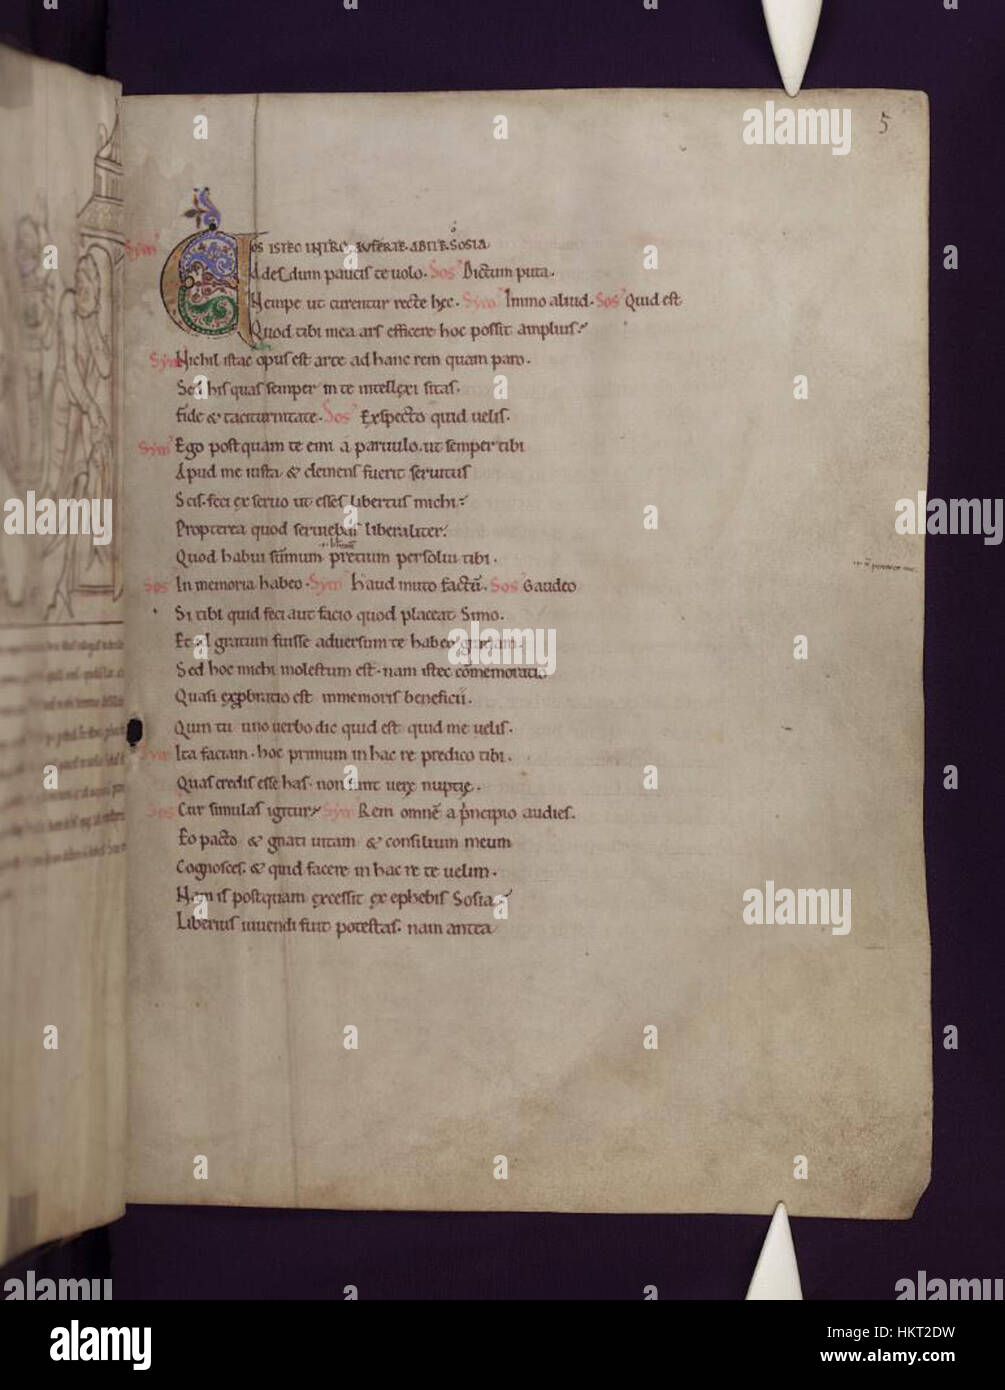 5
Sym̄ VOS ISTEC INTRO AUFERTE. ABITE. SOSIA
Adesdum paucis te uolo. Sos̄ Dictum puta.
Nempe ut curentur recte hęc. Sym̄ Immo aliud. Sos̄ Quid est
Quod tibi mea ars efficere hoc possit amplius?
Sym̄ Nichil istac opus est arte ad hanc rem quam paro.
Sed his quas semper in te intellexi sitas.
fide & taciturnitate. Sos̄ Exspecto quid uelis.
Sym̄ Ego postquam te emi a paruulo. ut semper tibi
Apud me iusta & clemens fuerit seruitus
Scis. feci ex seruo ut esses libertus michi?
Propterea quod seruiebas liberaliter.
Quod habui sūmum pretium persolui tibi.
Sos In memoria habeo. Sym̄ haud muto factū. Sos̄ Gaudeo
Si tibi quid feci aut facio quod placeat Simo.
Et gratum fuisse aduersum te habeo gratiam.
Sed hoc michi molestum est. nam istec cōmemoratio
Quasi exprobratio est inmemoris beneficii.
Quin tu uno uerbo dic quid est quid me uelis.
Sym̄ Ita faciam. hoc primum in hac re predico tibi.
Quas credis esse has. non sunt uerę nuptię.
Sos Cur simulas igitur? Sym̄ Rem omnē a principio audies.
Eo pacto & gnati uitam & consilium meum
Cognosces. & quid facere in hac re te uelim.
Nam is postquam excessit ex ephebis Sosia
Liberius uiuendi fuit potestas. nam antea
alamy
Image ID: HKT2DW
www.alamy.com